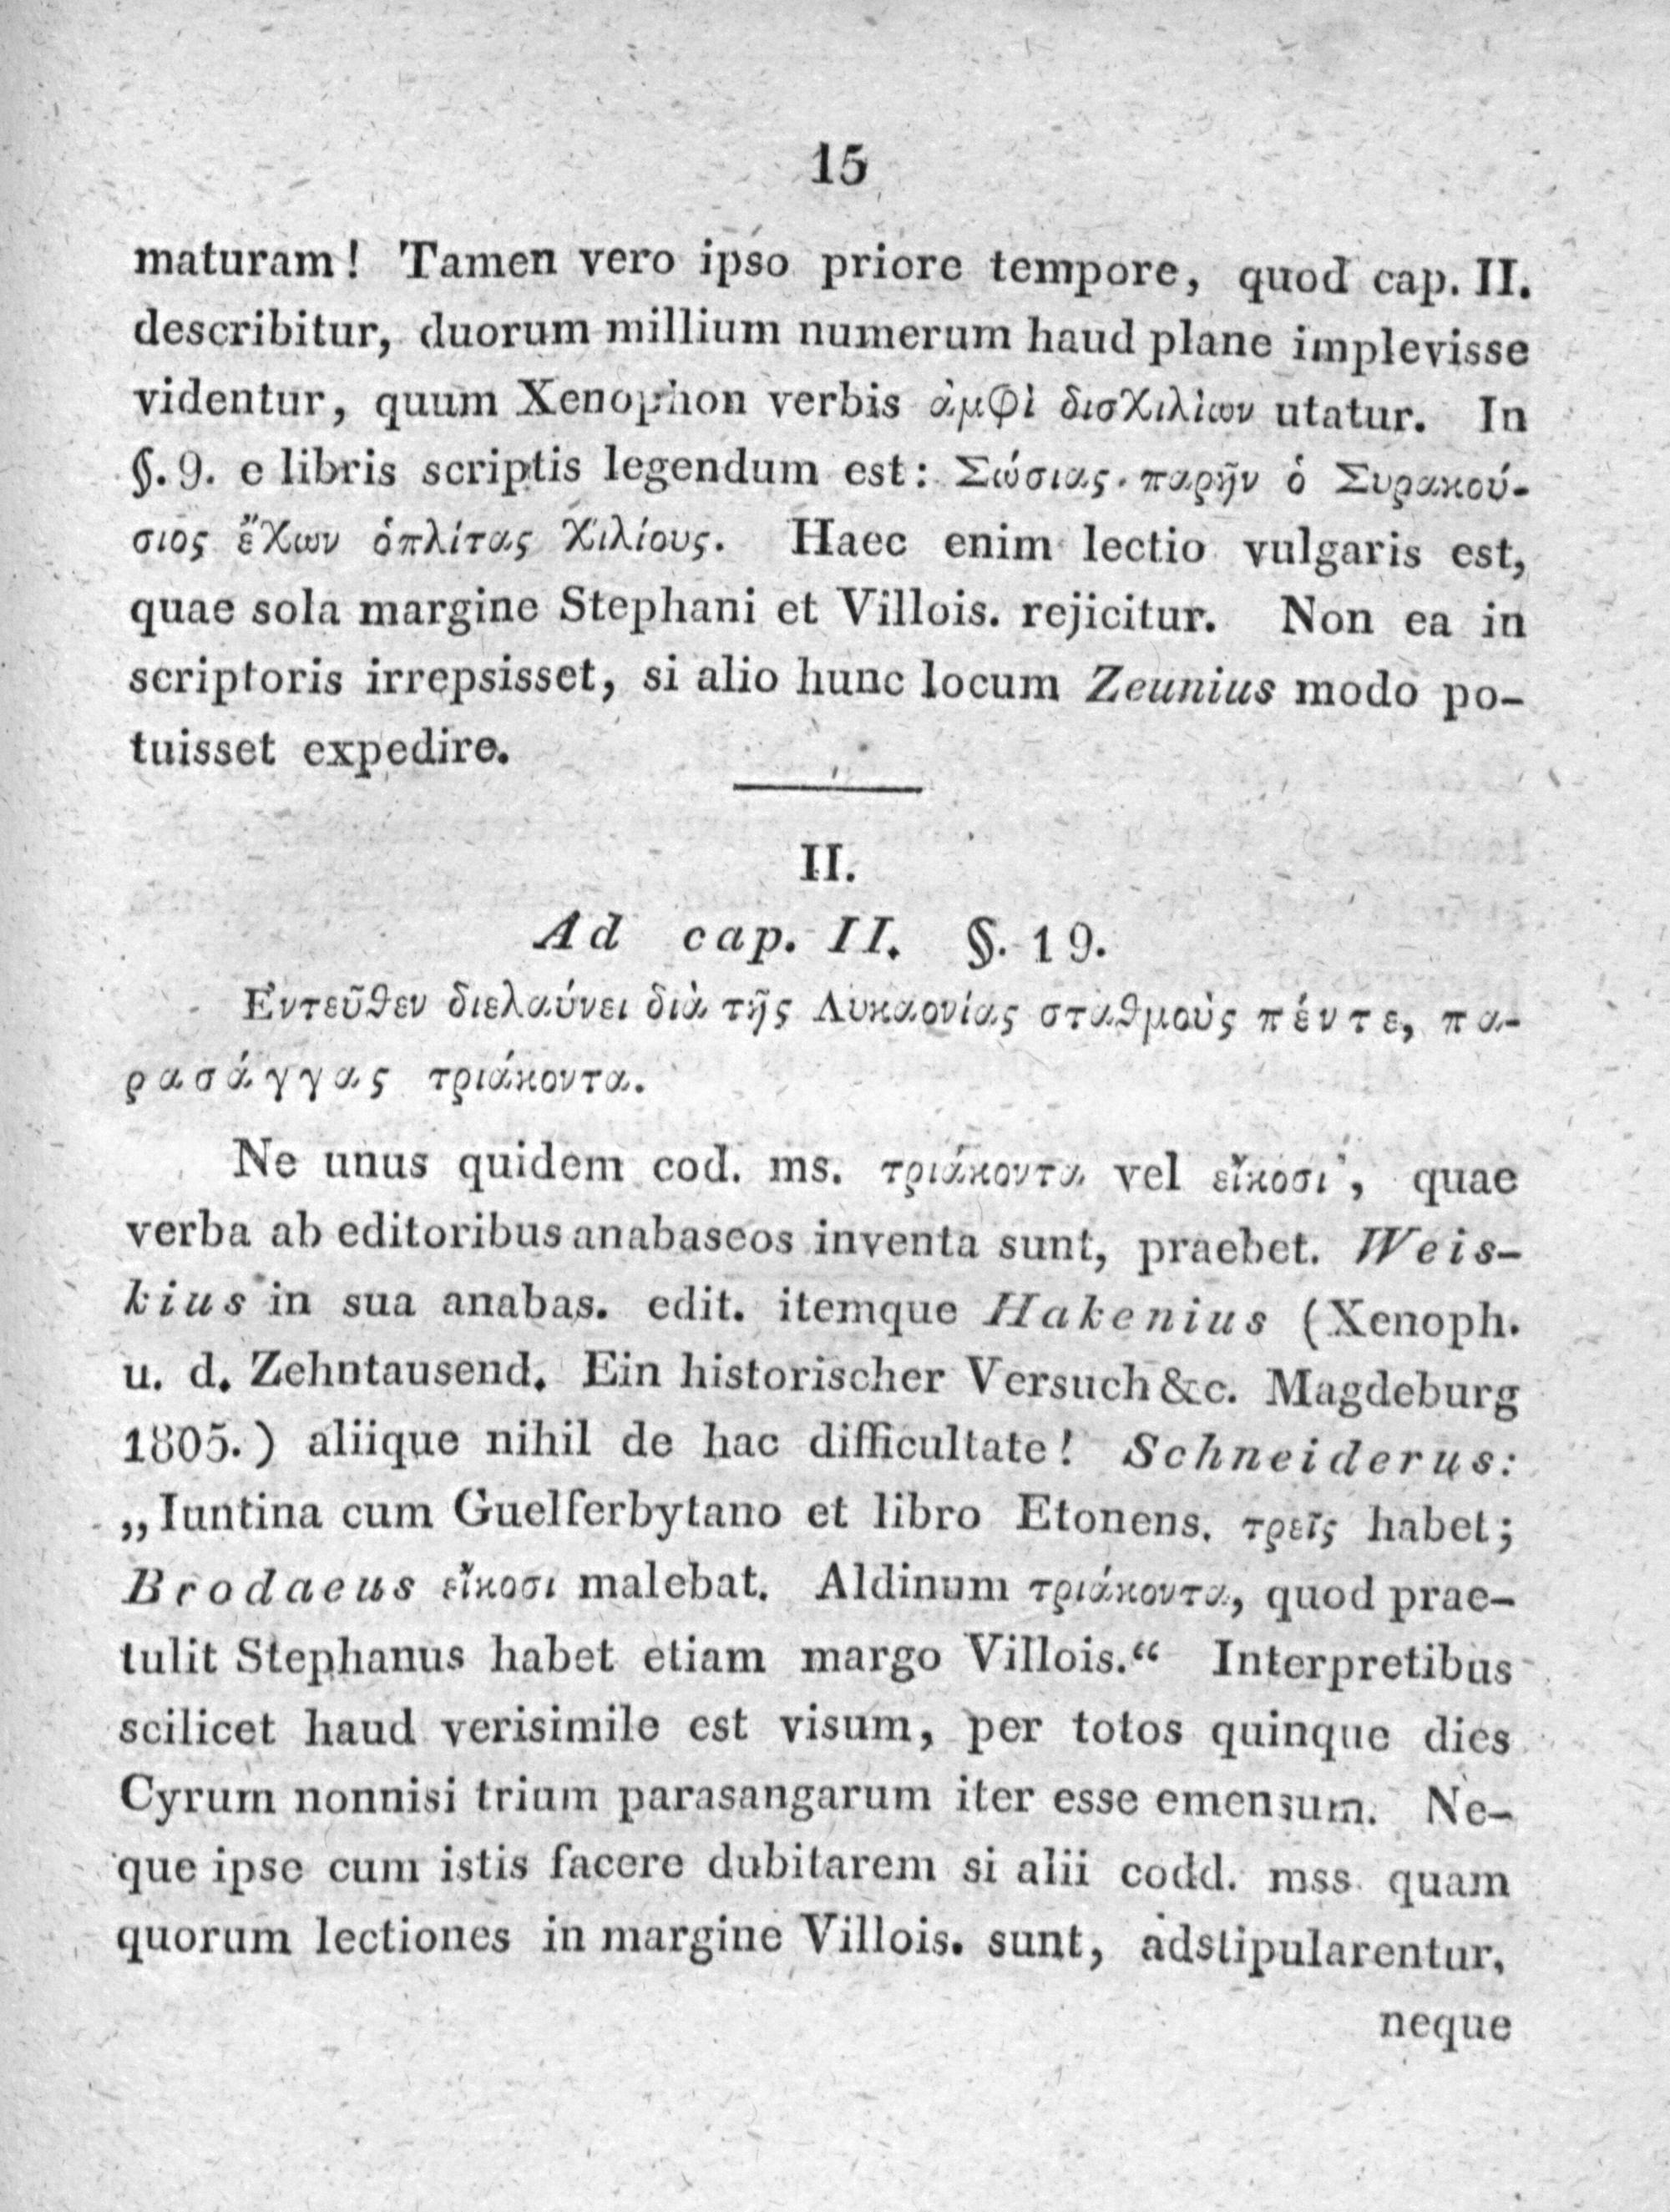 15
maturam! Tamen vero ipso priore tempore, quod cap. II.
describitur, duorum millium numerum haud plane implevisse
videntur, quum Xenophon verbis ἀμφὶ δισχιλίων utatur. In
§. 9. e libris scriptis legendum est: Σώσιας παρῆν ὁ Συρακού-
σιος ἔχων ὁπλίτας χιλίους. Haec enim lectio vulgaris est,
quae sola margine Stephani et Villois. rejicitur. Non ea in
scriptoris irrepsisset, si alio hunc locum Zeunius modo po-
tuisset expedire.
II.
Ad cap. II. §. 19.
Ἐντεῦθεν διελαύνει διὰ τῆς Λυκαονίας σταθμοὺς πέντε, πα-
ρασάγγας τριάκοντα.
Ne unus quidem cod. ms. τριάκοντα vel εἴκοσι, quae
verba ab editoribus anabaseos inventa sunt, praebet. Weis-
kius in sua anabas. edit. itemque Hakenius (Xenoph.
u. d. Zehntausend. Ein historischer Versuch &c. Magdeburg
1805.) aliique nihil de hac difficultate! Schneiderus:
„Iuntina cum Guelferbytano et libro Etonens. τρεῖς habet;
Brodaeus εἴκοσι malebat. Aldinum τριάκοντα, quod prae-
tulit Stephanus habet etiam margo Villois.“ Interpretibus
scilicet haud verisimile est visum, per totos quinque dies
Cyrum nonnisi trium parasangarum iter esse emensum. Ne-
que ipse cum istis facere dubitarem si alii codd. mss. quam
quorum lectiones in margine Villois. sunt, adstipularentur,
neque